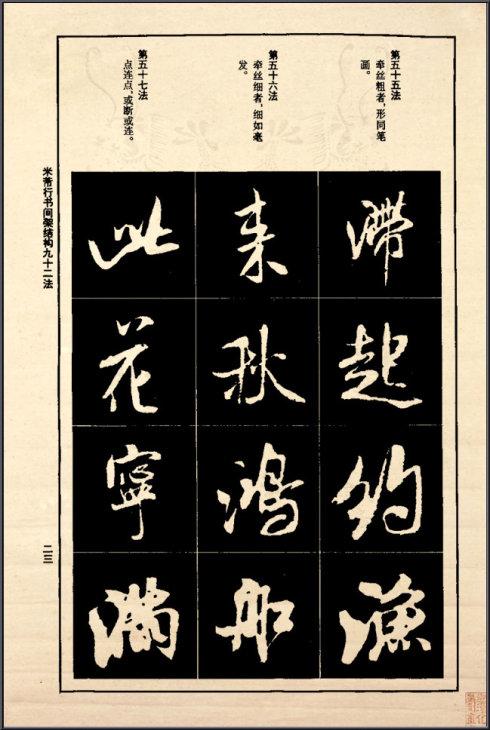 第五十五法
牵丝粗者，形同笔
画。
第五十六法
牵丝细者，细如毫
发。
第五十七法
点连点，或断或连。
滞起约渔
来秋鸿船
此花宁满
米芾行书间架结构九十二法
二三